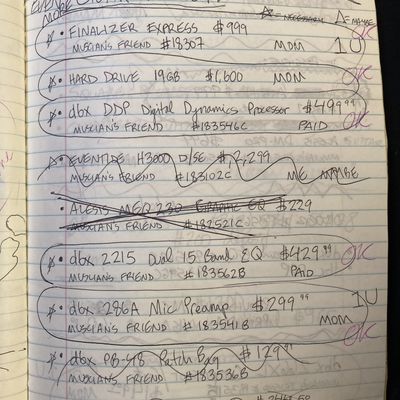 MORE
☆ = NECESSARY △ = MAYBE
☆ • FINALIZER EXPRESS $999 OK
MUSCIANS FRIEND #18307 MOM 1U
☆ • HARD DRIVE 19GB $1,600 MOM OK
☆ • dbx DDP Digital Dynamics Processor $499.99
MUSCIANS FRIEND #183546C PAID OK
☆ • EVENTIDE H3000 D/SE $2,299
MUSCIANS FRIEND #183102C ME MAYBE
• ALESIS MEQ 230 GRAPHIC EQ $229
MUSCIANS FRIEND #182521C
☆ • dbx 2215 Dual 15 Band EQ $429.99 OK
MUSCIANS FRIEND #183562B PAID
☆ • dbx 286A Mic Preamp $299.99 1U
MUSCIANS FRIEND #183541B MOM
OK
☆ • dbx PB-48 Patch Bay $129.99
MUSCIANS FRIEND #183536B